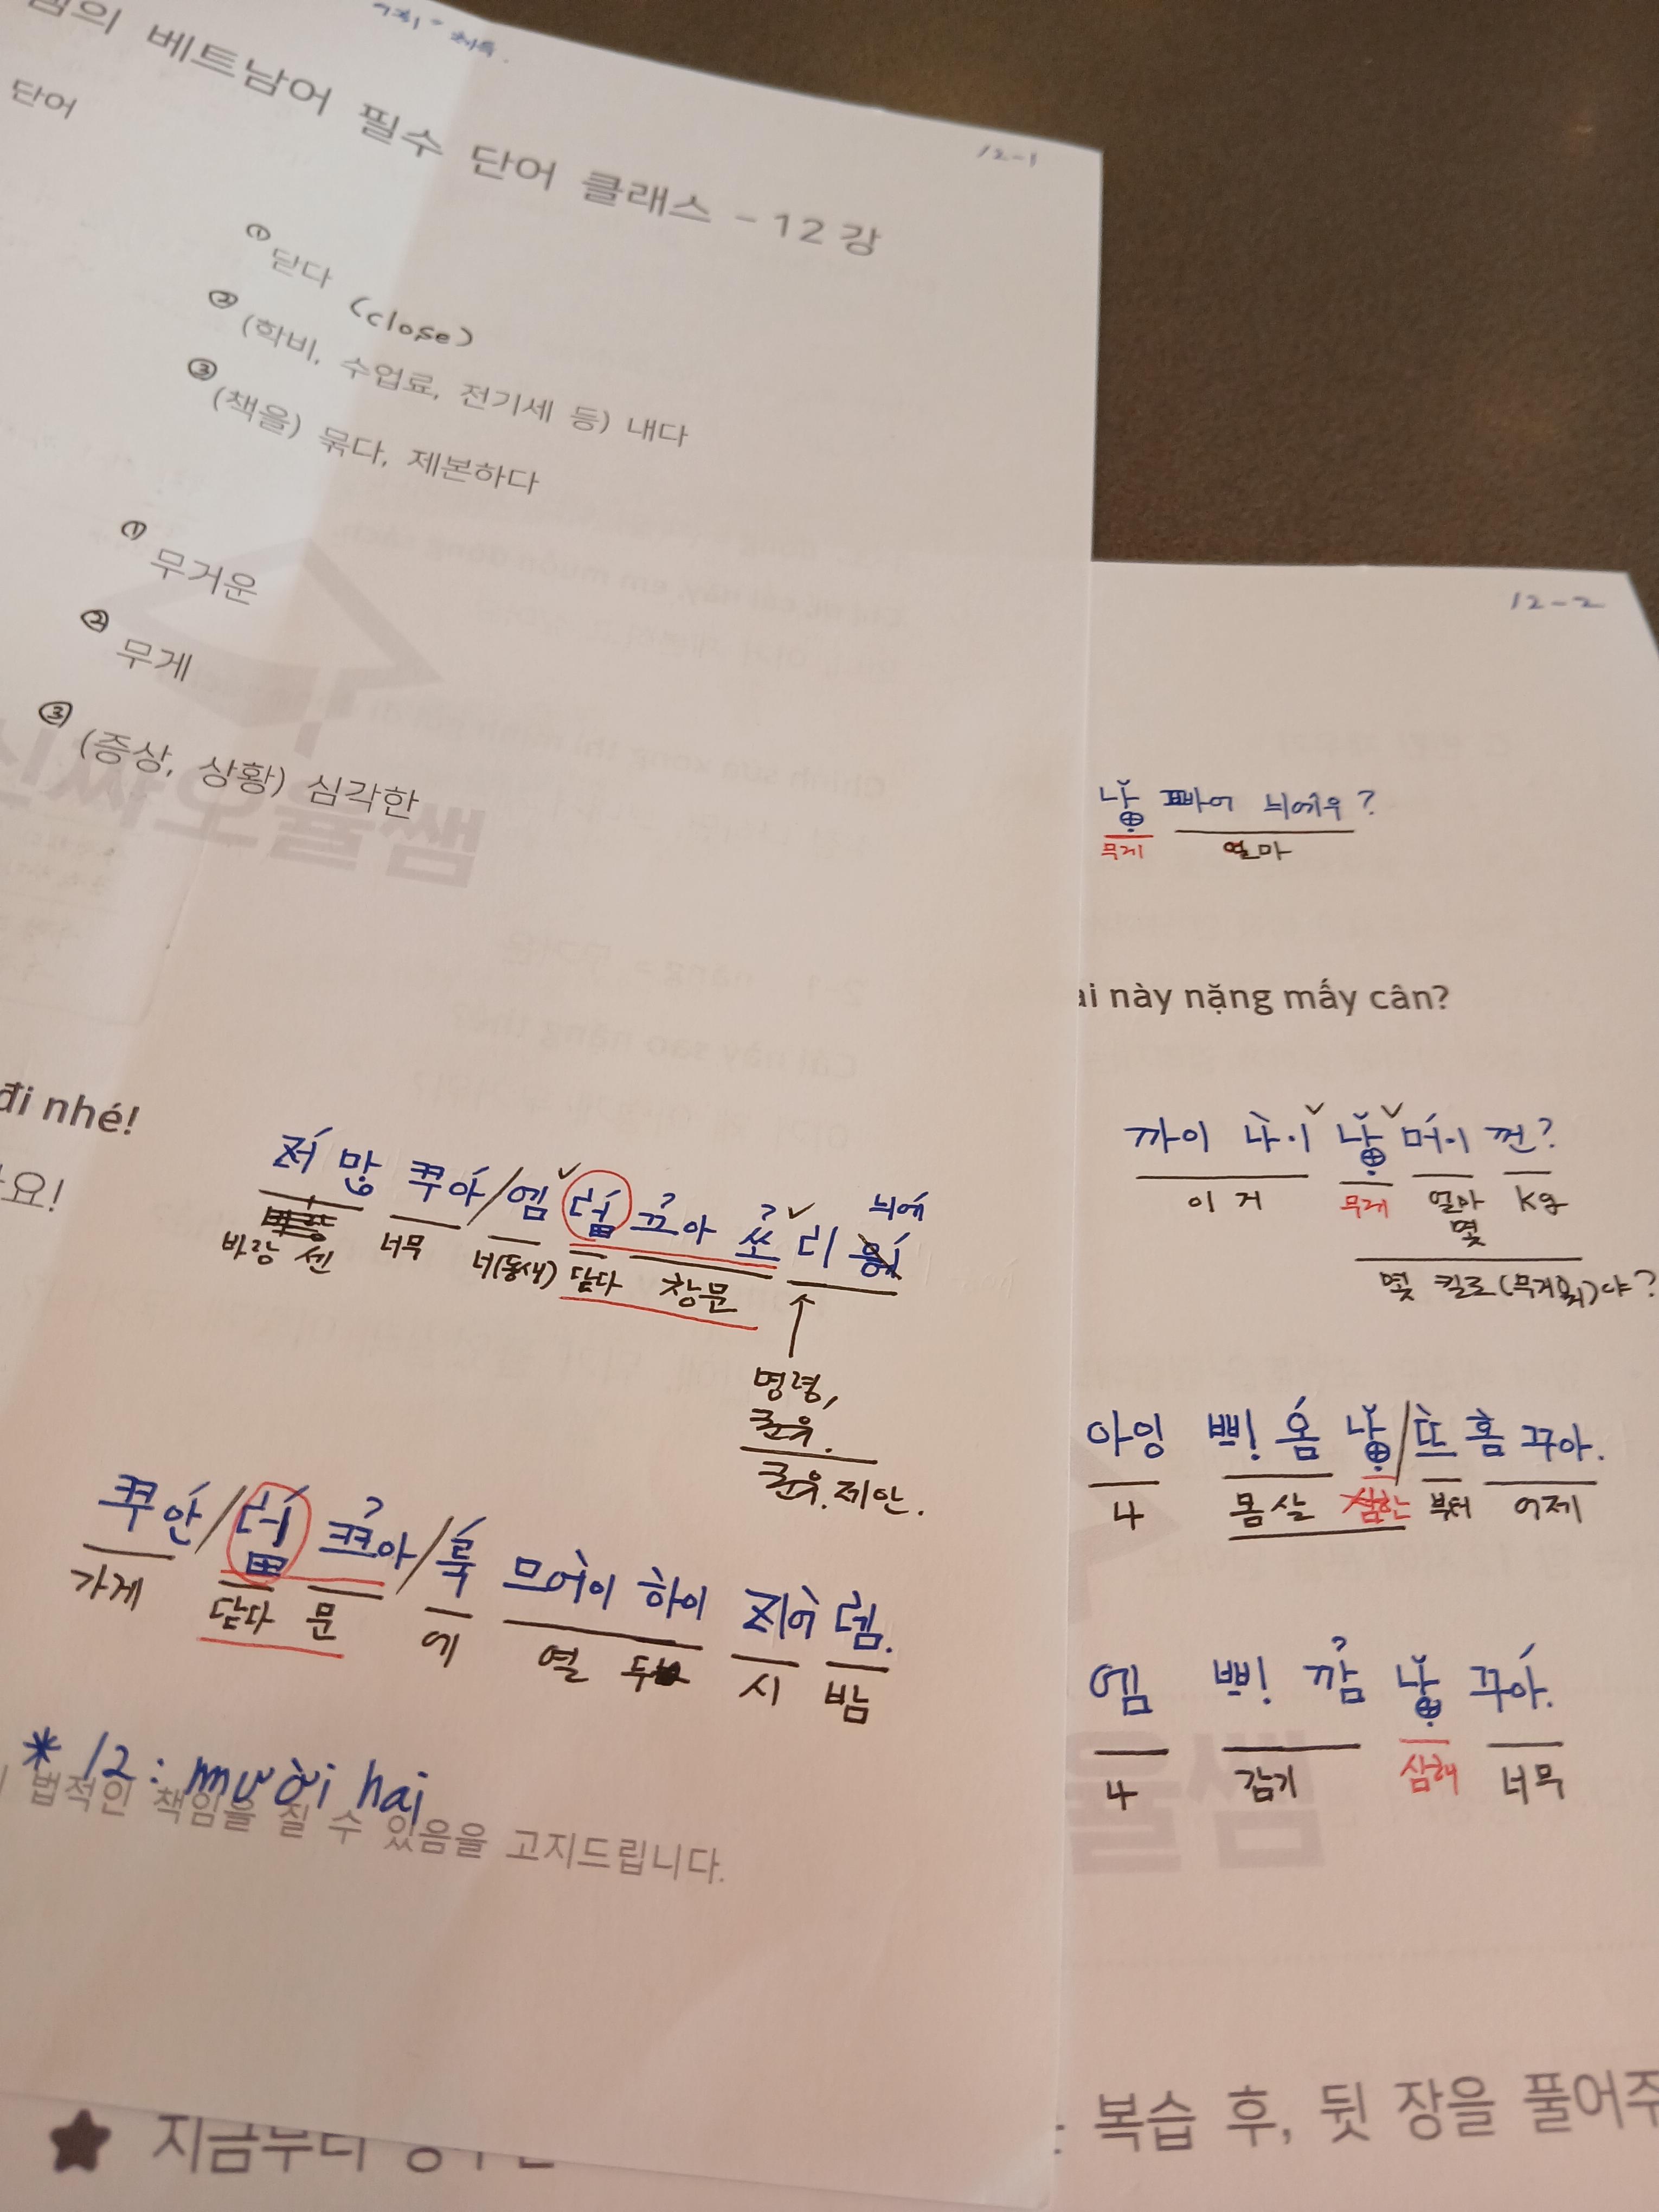 베트남어 필수 단어 클래스 - 12강
12-1
단어
① 닫다 (close)
② (학비, 수업료, 전기세 등) 내다
③ (책을) 묶다, 제본하다
① 무거운
② 무게
③ (증상, 상황) 심각한
신짜오율쌤
đi nhé!
요!
꾸아 / 엠 끄아 쏘 리 늬에
바람 센 너무 너(동생) 닫다 창문
명령,
권유.
권유. 제안.
꾸안 / 끄아 / 룩 므어이 하이 지어 뎀.
가게 닫다 문 에 열 두 시 밤
* 12 : mười hai
법적인 책임을 질 수 있음을 고지드립니다.
★ 지금부터
12-2
낭 빠어 늬에우?
무게 얼마
ai này nặng mấy cân?
까이 나이 낭 머이 껀?
이 거 무게 얼마 kg
몇
몇 킬로(무거워)야?
아잉 삐! 옴 낭 / 뜨 홈 꾸아.
너 몸살 심한 부터 어제
엠 삐! 깜 낭 꾸아.
너 감기 심해 너무
율쌤
복습 후, 뒷 장을 풀어주